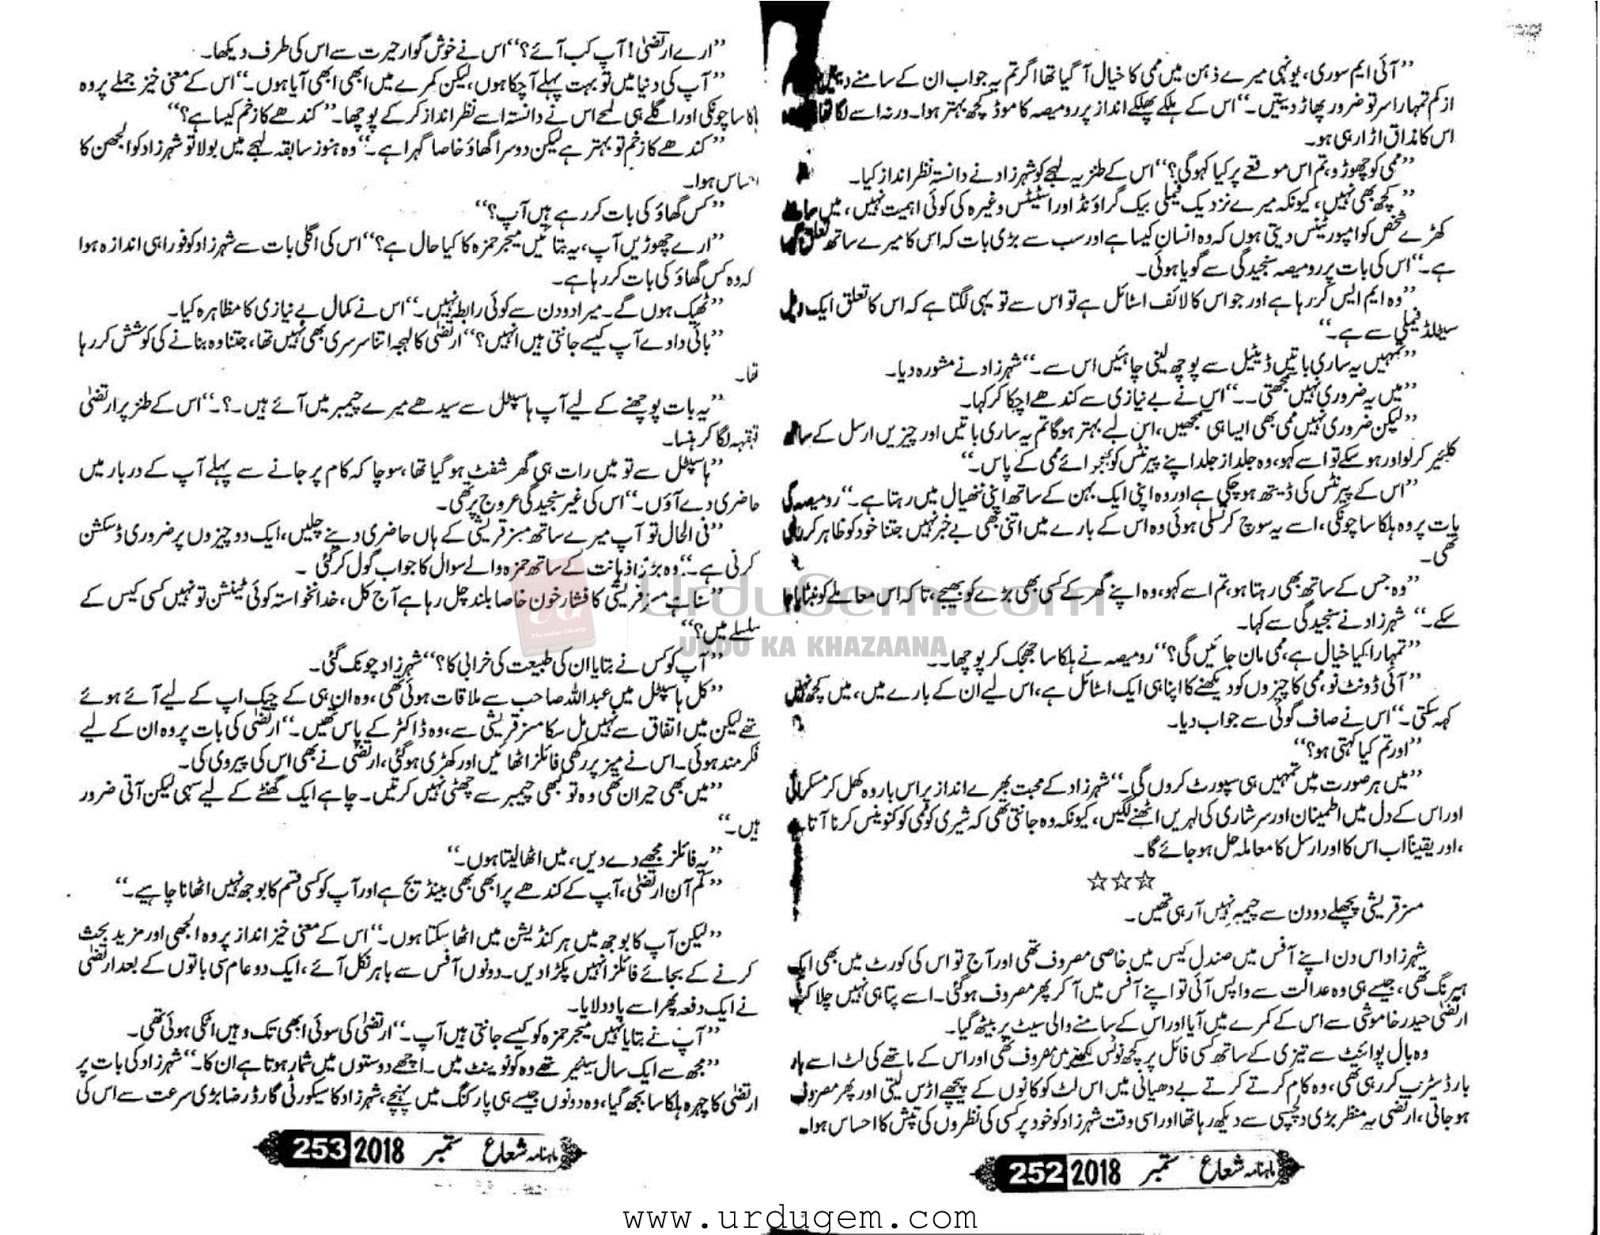 ’’آئی ایم سوری، یونہی میرے ذہن میں ممی کا خیال آ گیا تھا اگر تم یہ جواب ان کے سامنے
از کم تمہارا سر تو ضرور پھاڑ دیتیں۔‘‘ اس کے ہلکے پھلکے انداز پر رومیصہ کا موڈ کچھ بہتر ہوا۔ ورنہ اسے لگا
اس کا مذاق اڑا رہی ہو۔
’’ممی کو چھوڑو، تم اس موقعے پر کیا کہو گی؟‘‘ اس کے طنزیہ لہجے کو شہرزاد نے دانستہ نظر انداز کیا۔
’’کچھ بھی نہیں، کیونکہ میرے نزدیک فیملی بیک گراؤنڈ اور اسٹیٹس وغیرہ کی کوئی اہمیت نہیں، میں
کھڑے شخص کو امپورٹینس دیتی ہوں کہ وہ انسان کیسا ہے اور سب سے بڑی بات کہ اس کا میرے ساتھ تعلق
ہے۔‘‘ اس کی بات پر رومیصہ سنجیدگی سے گویا ہوئی۔
’’وہ ایم ایس کر رہا ہے اور جو اس کا لائف اسٹائل ہے تو اس سے تو یہی لگتا ہے کہ اس کا تعلق ایک
سیٹلڈ فیملی سے ہے۔‘‘
’’تمہیں یہ ساری باتیں ڈیٹیل سے پوچھ لینی چاہئیں اس سے۔‘‘ شہرزاد نے مشورہ دیا۔
’’میں یہ ضروری نہیں سمجھتی۔۔‘‘ اس نے بے نیازی سے کندھے اچکا کر کہا۔
’’لیکن ضروری نہیں ممی بھی ایسا ہی سمجھیں، اس لیے بہتر ہوگا تم یہ ساری باتیں اور چیزیں ارسل کے ساتھ
کلیئر کر لو اور ہو سکے تو اسے کہو، وہ جلد از جلد اپنے پیرنٹس کو بھجوائے ممی کے پاس۔‘‘
’’اس کے پیرنٹس کی ڈیتھ ہو چکی ہے اور وہ اپنی ایک بہن کے ساتھ اپنی ننھیال میں رہتا ہے۔‘‘ رومیصہ کی
بات پر وہ ہلکا سا چونکی، اسے یہ سوچ کر تسلی ہوئی وہ اس کے بارے میں اتنی بھی بے خبر نہیں جتنا خود کو ظاہر کر رہی
تھی۔
’’وہ جس کے ساتھ بھی رہتا ہو، تم اسے کہو، وہ اپنے گھر کے کسی بھی بڑے کو بھیجے، تاکہ اس معاملے کو نبٹایا جا
سکے۔‘‘ شہرزاد نے سنجیدگی سے کہا۔
’’تمہارا کیا خیال ہے، ممی مان جائیں گی؟‘‘ رومیصہ نے ہلکا سا جھجک کر پوچھا۔۔
’’آئی ڈونٹ نو، ممی کا چیزوں کو دیکھنے کا اپنا ہی ایک اسٹائل ہے، اس لیے ان کے بارے میں، میں کچھ نہیں
کہہ سکتی۔‘‘ اس نے صاف گوئی سے جواب دیا۔
’’اور تم کیا کہتی ہو؟‘‘
’’میں ہر صورت میں تمہیں ہی سپورٹ کروں گی۔‘‘ شہرزاد کے محبت بھرے انداز پر اس بار وہ کھل کر مسکرائی
اور اس کے دل میں اطمینان اور سرشاری کی لہریں اٹھنے لگیں، کیونکہ وہ جانتی تھی کہ شیری کو ممی کو کنوینس کرنا آتا
، اور یقیناً اب اس کا اور ارسل کا معاملہ حل ہو جائے گا۔
☆☆☆
مسز قریشی پچھلے دو دن سے چیمبر نہیں آ رہی تھیں۔
شہرزاد اس دن اپنے آفس میں صندل کیس میں خاصی مصروف تھی اور آج تو اس کی کورٹ میں بھی ایک
ہیرنگ تھی، جیسے ہی وہ عدالت سے واپس آئی تو اپنے آفس میں آ کر پھر مصروف ہو گئی۔ اسے پتا ہی نہیں چلا کب
ارتضیٰ حیدر خاموشی سے اس کے کمرے میں آیا اور اس کے سامنے والی سیٹ پر بیٹھ گیا۔
وہ بال پوائنٹ سے تیزی کے ساتھ کسی فائل پر کچھ نوٹس لکھنے میں مصروف تھی اور اس کے ماتھے کی لٹ اسے بار
بار ڈسٹرب کر رہی تھی، وہ کام کرتے کرتے بے دھیانی میں اس لٹ کو کانوں کے پیچھے اڑس لیتی اور پھر مصروف
ہو جاتی، ارتضیٰ یہ منظر بڑی دلچسپی سے دیکھ رہا تھا اور اسی وقت شہرزاد کو خود پر کسی کی نظروں کی تپش کا احساس ہوا۔
ماہنامہ شعاع ستمبر 2018 252
’’ارے ارتضیٰ! آپ کب آئے؟‘‘ اس نے خوش گوار حیرت سے اس کی طرف دیکھا۔
’’آپ کی دنیا میں تو بہت پہلے آ چکا ہوں، لیکن کمرے میں ابھی ابھی آیا ہوں۔‘‘ اس کے معنی خیز جملے پر وہ
ہلکا سا چونکی اور اگلے ہی لمحے اس نے دانستہ اسے نظر انداز کر کے پوچھا۔ ’’کندھے کا زخم کیسا ہے؟‘‘
’’کندھے کا زخم تو بہتر ہے لیکن دوسرا گھاؤ خاصا گہرا ہے۔‘‘ وہ ہنوز سابقہ لہجے میں بولا تو شہرزاد کو الجھن کا
احساس ہوا۔
’’کس گھاؤ کی بات کر رہے ہیں آپ؟‘‘
’’ارے چھوڑیں آپ، یہ بتائیں میجر حمزہ کا کیا حال ہے؟‘‘ اس کی اگلی بات سے شہرزاد کو فوراً ہی اندازہ ہوا
کہ وہ کس گھاؤ کی بات کر رہا ہے۔
’’ٹھیک ہوں گے۔ میرا دو دن سے کوئی رابطہ نہیں۔‘‘ اس نے کمال بے نیازی کا مظاہرہ کیا۔
’’بائی دا وے آپ کیسے جانتی ہیں انہیں؟‘‘ ارتضیٰ کا لہجہ اتنا سرسری بھی نہیں تھا، جتنا وہ بنانے کی کوشش کر رہا
تھا۔
’’یہ بات پوچھنے کے لیے آپ ہاسپٹل سے سیدھے میرے چیمبر میں آئے ہیں۔؟۔‘‘ اس کے طنز پر ارتضیٰ
قہقہہ لگا کر ہنسا۔
’’ہاسپٹل سے تو میں رات ہی گھر شفٹ ہو گیا تھا، سوچا کہ کام پر جانے سے پہلے آپ کے دربار میں
حاضری دے آؤں۔‘‘ اس کی غیر سنجیدگی عروج پر تھی۔
’’فی الحال تو آپ میرے ساتھ مسز قریشی کے ہاں حاضری دینے چلیں، ایک دو چیزوں پر ضروری ڈسکشن
کرنی ہے۔‘‘ وہ بڑی ذہانت کے ساتھ حمزہ والے سوال کا جواب گول کر گئی۔
’’سنا ہے مسز قریشی کا فشار خون خاصا بلند چل رہا ہے آج کل، خدانخواستہ کوئی ٹینشن تو نہیں کسی کیس کے
سلسلے میں؟‘‘
’’آپ کو کس نے بتایا ان کی طبیعت کی خرابی کا؟‘‘ شہرزاد چونک گئی۔
’’کل ہاسپٹل میں عبداللہ صاحب سے ملاقات ہوئی تھی، وہ ان ہی کے چیک اپ کے لیے آئے ہوئے
تھے لیکن میں اتفاق سے نہیں مل سکا مسز قریشی سے، وہ ڈاکٹر کے پاس تھیں۔‘‘ ارتضیٰ کی بات پر وہ ان کے لیے
فکرمند ہوئی۔ اس نے میز پر رکھی فائلز اٹھائیں اور کھڑی ہو گئی، ارتضیٰ نے بھی اس کی پیروی کی۔
’’میں بھی حیران تھی وہ تو کبھی چیمبر سے چھٹی نہیں کرتیں۔ چاہے ایک گھنٹے کے لیے سہی لیکن آتی ضرور
ہیں۔‘‘
’’یہ فائلز مجھے دے دیں، میں اٹھا لیتا ہوں۔‘‘
’’کم آن ارتضیٰ، آپ کے کندھے پر ابھی بھی بینڈیج ہے اور آپ کو کسی قسم کا بوجھ نہیں اٹھانا چاہیے۔‘‘
’’لیکن آپ کا بوجھ میں ہر کنڈیشن میں اٹھا سکتا ہوں۔‘‘ اس کے معنی خیز انداز پر وہ الجھی اور مزید بحث
کرنے کے بجائے فائلز انہیں پکڑا دیں۔ دونوں آفس سے باہر نکل آئے، ایک دو عام سی باتوں کے بعد ارتضیٰ
نے ایک دفعہ پھر اسے یاد دلایا۔
’’آپ نے بتایا نہیں میجر حمزہ کو کیسے جانتی ہیں آپ۔‘‘ ارتضیٰ کی سوئی ابھی تک وہیں اٹکی ہوئی تھی۔
’’مجھ سے ایک سال سینئیر تھے وہ کونوینٹ میں۔ اچھے دوستوں میں شمار ہوتا ہے ان کا۔‘‘ شہرزاد کی بات پر
ارتضیٰ کا چہرہ ہلکا سا بجھ گیا، وہ دونوں جیسے ہی پارکنگ میں پہنچے، شہرزاد کا سیکورٹی گارڈ رضا بڑی سرعت سے اس کی
ماہنامہ شعاع ستمبر 2018 253
UrduGem.com
URDU KA KHAZAANA
www.urdugem.com